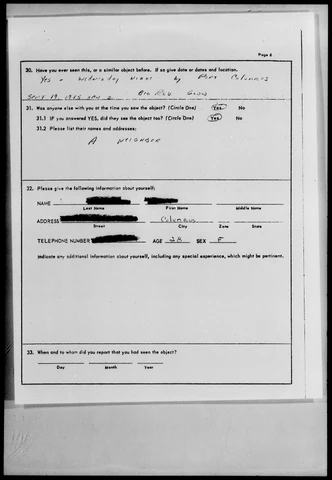 Page 6
30. Have you ever seen this, or a similar object before. If so give date or dates and location.
Yes - Wednesday Night by Port Columbus
Sept 19, 1965
Big Red Glow
31. Was anyone else with you at the time you saw the object? (Circle One) Yes No
31.1 If you answered YES, did they see the object too? (Circle One) Yes No
31.2 Please list their names and addresses:
A NEIGHBOR
32. Please give the following information about yourself:
NAME
Last Name First Name Middle Name
ADDRESS Columbus
Street City Zone State
TELEPHONE NUMBER AGE 28 SEX F
Indicate any additional information about yourself, including any special experience, which might be pertinent.
33. When and to whom did you report that you had seen the object?
Day Month Year